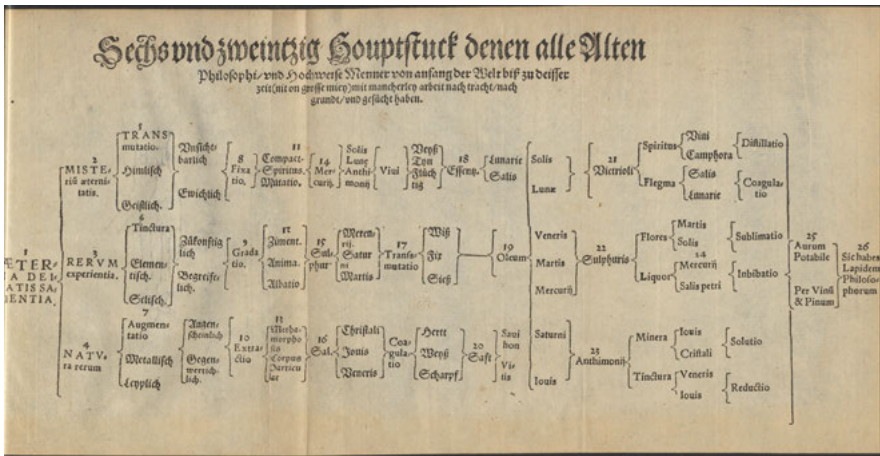 Sechs vnd zweintzig Houptstuck denen alle Alten
Philosophi/vnd Hochweise Menner von anfang der Welt biß zu deisser
zeit(nit on grosse miey)mit mancherley arbeit nach tracht/nach
grundt/vnd gesücht haben.
1
ÆTER-
A DEI
ATISSA
IENTIA.
2
MISTE-
riū æterni-
tatis.
3
RERVM
experientia.
4
NATV-
ra rerum
5
TRANS
mutatio.
Himlisch
Geistlich.
6
Tinctura
Elemen-
tisch.
Selisch.
7
Augmen-
tatio
Metallisch
Leyplich
Vnsicht-
barlich
Ewichlich
Zůkonfftig
lich
Begreiff-
lich.
Augen-
scheinlich
Gegen-
wertich-
lich.
8
Fixa
tio.
9
Grada
tio.
10
Extra-
ctio
11
Compact-
Spiritus.
Mutatio.
12
Ziment.
Anima.
Albatio
13
Metha-
morpho
sis
Corpus
Particu
lar
14
Mer-
curij.
15
Sul-
phur
16
Sal.
Solis
Lunę
Anthi-
monij
Meren-
rij.
Satur
ni
Martis
Christali
Jonis
Veneris
Viui
17
Transf-
mutatio
Coa-
gula-
tio
Weyß
Tyn
Flüch
tig
Wiß
Fix
Sieß
Hertt
Weyß
Scharpf
18
Essentz.
19
Oleum
20
Safft
Lunarie
Salis
Saui
hon
Vi-
tis
Solis
Lunæ
Veneris
Martis
Mercurij
Saturni
Iouis
21
Victrioli
22
Sulphuris
23
Anthimonij
Spiritus
Flegma
Flores
24
Liquor
Minera
Tinctura
Vini
Camphora
Salis
Lunarie
Martis
Solis
Mercurij
Salis petri
Iouis
Cristali
Veneris
Iouis
Distillatio
Coagula-
tio
Sublimatio
Inbibatio
Solutio
Reductio
25
Aurum
Potabile
Per Vinū
& Pinum
26
Sic habes
Lapidem
Philoso-
phorum